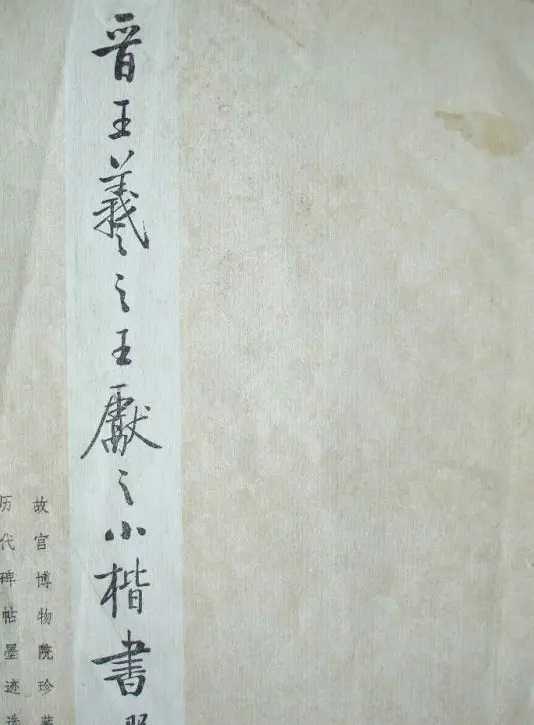 晋王羲之王獻之小楷書
故宫博物院珍藏
历代碑帖墨迹选